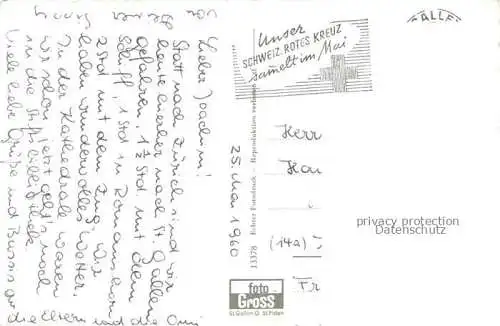 Lieber Joachim!
Statt nach Zürich sind wir
heute hierher nach St. Gallen
gefahren, 1½ Std mit dem
Schiff, 1 Std in Romanshorn,
2 Std mit dem Zug. Wir
haben wundervolles Wetter.
In der Kathedrale waren
wir schon, jetzt geht's noch
in die Stiftsbibliothek.
Viele liebe Grüße und Bussis an
die Eltern und die Omi
von
ÄLLE
Unser
SCHWEIZ. ROTES KREUZ
sammelt im Mai
25. Mai 1960
13378 Echter Fotodruck - Reproduktion verboten
Herr
(14a)
privacy protection
Datenschutz
foto
GROSS
St. Gallen